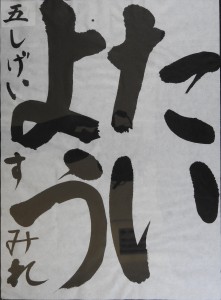 たい
よう
五 しげい すみれ